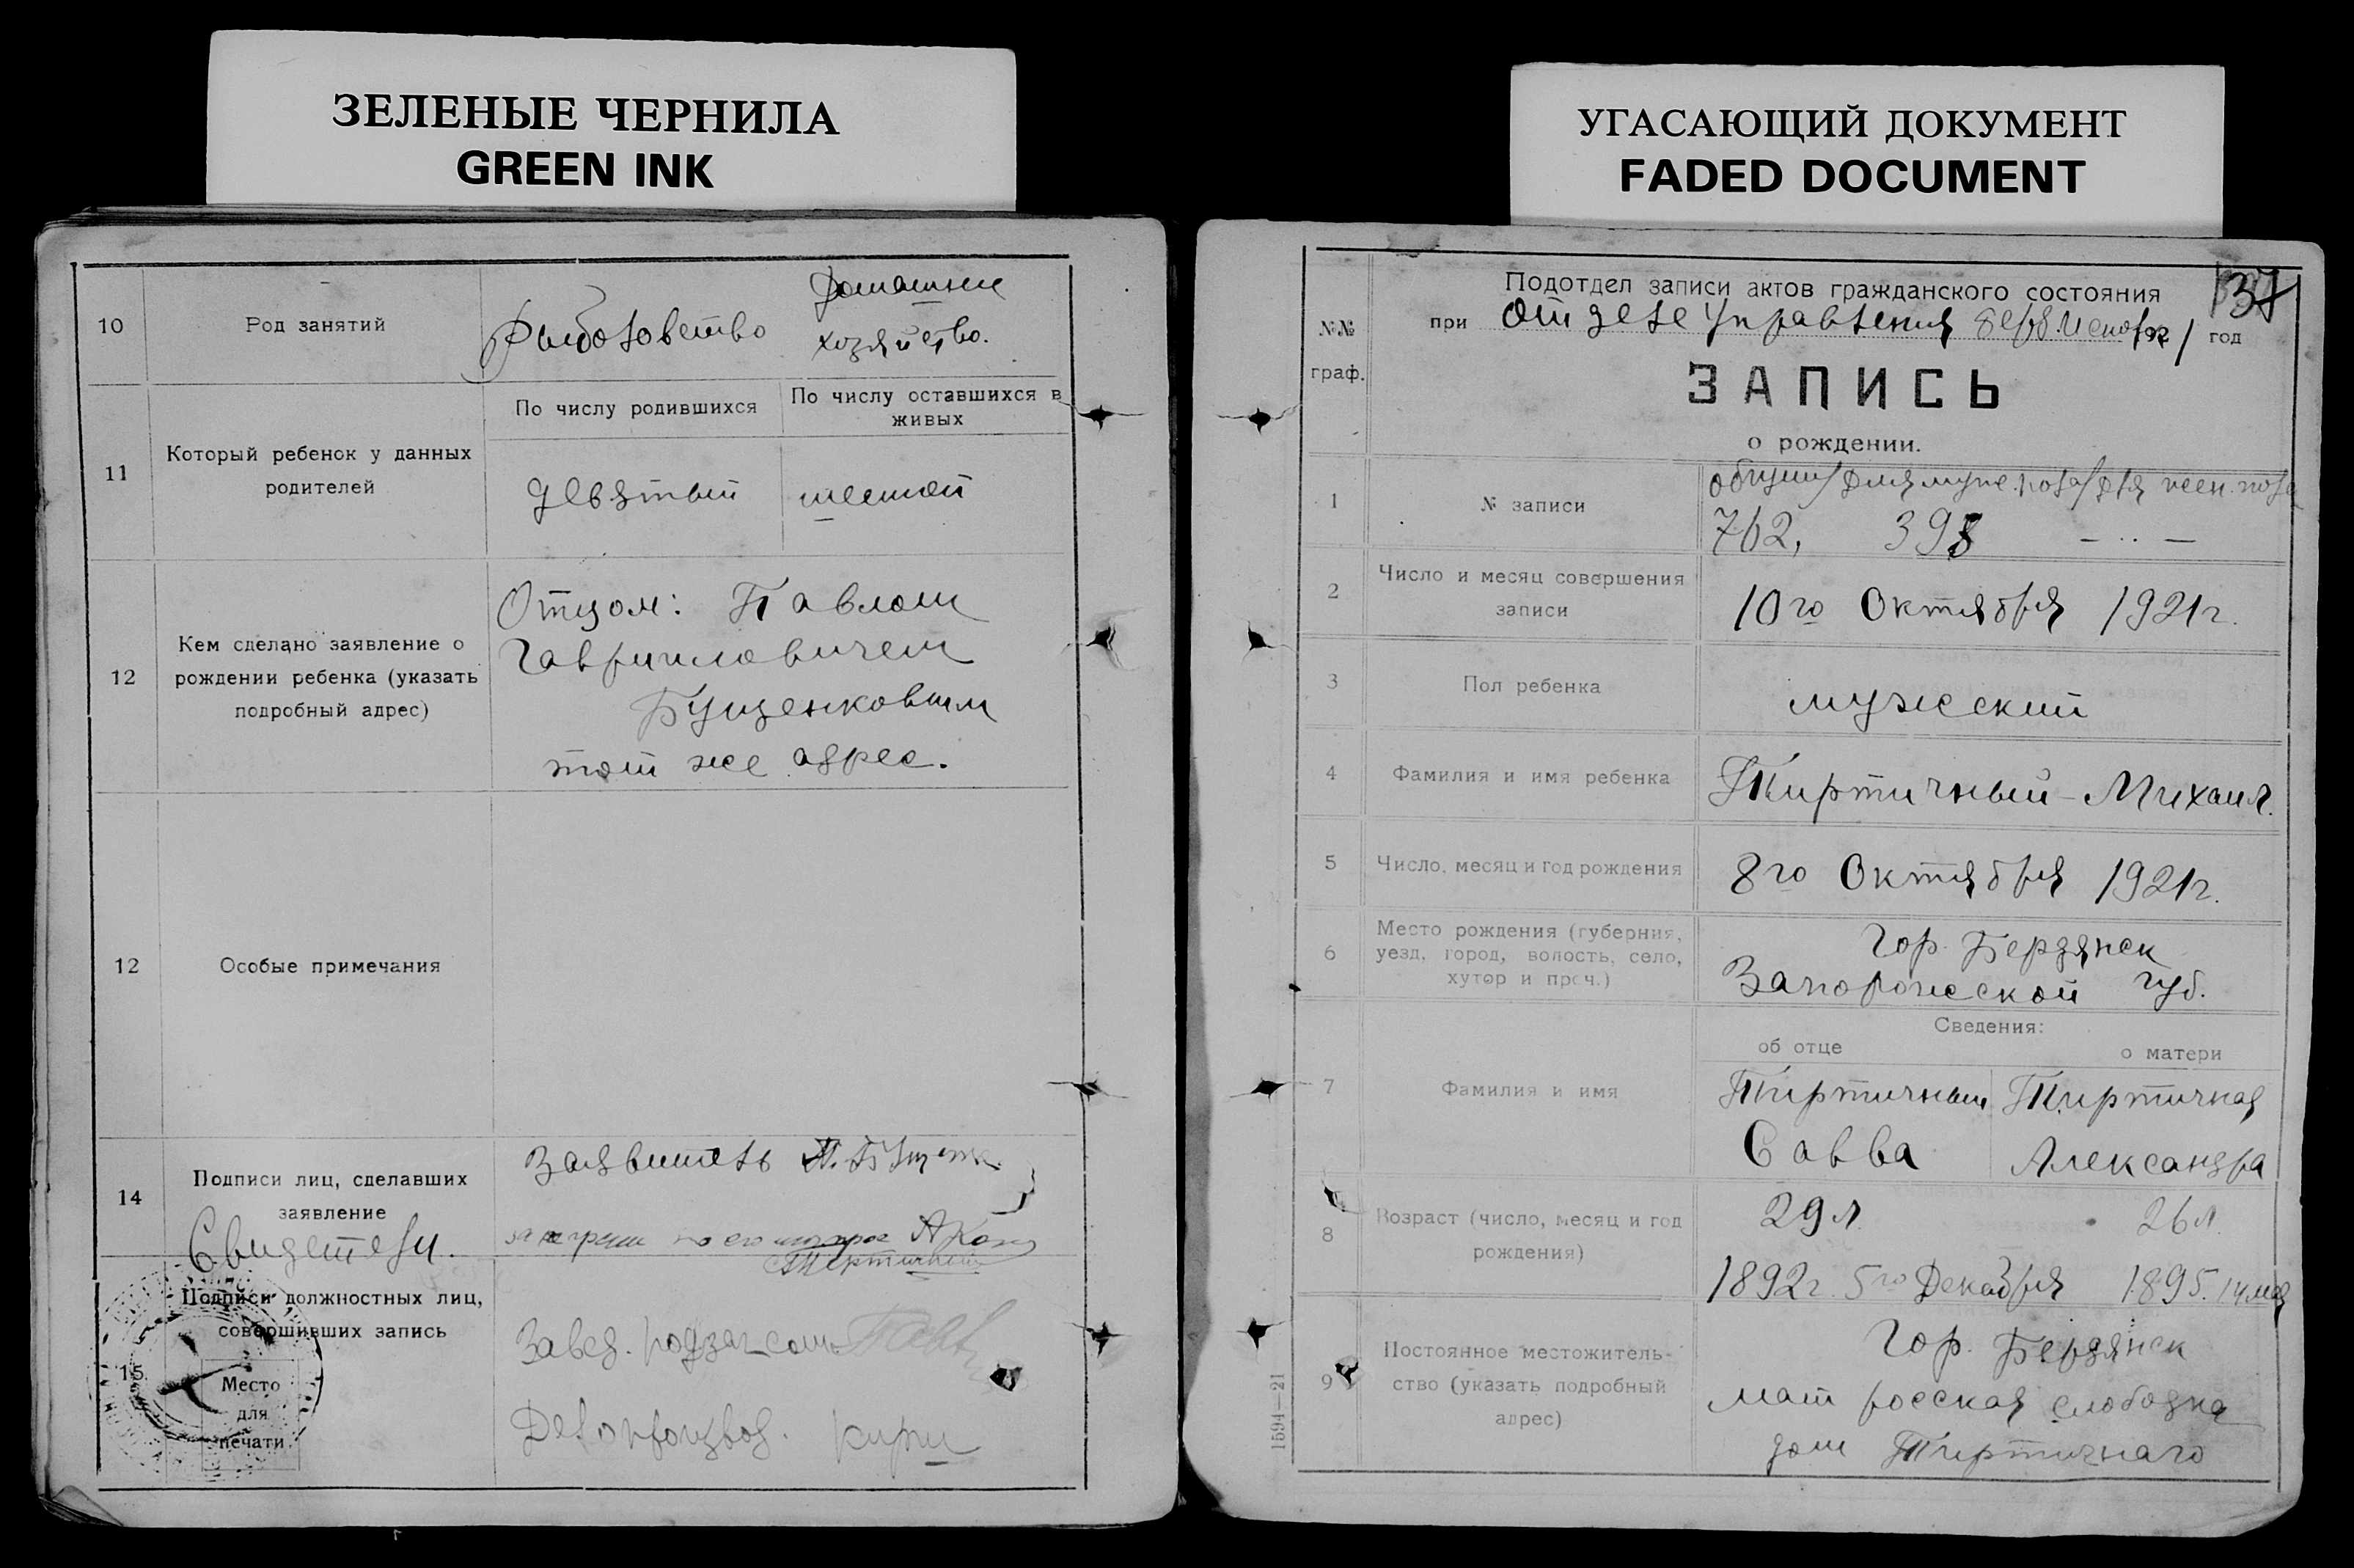 ЗЕЛЕНЫЕ ЧЕРНИЛА
GREEN INK
10
Род занятий
Рыболовство
Домашнее
хозяйство.
11
Который ребенок у данных
родителей
По числу родившихся
По числу оставшихся в
живых
девятый
шестой
12
Кем сделано заявление о
рождении ребенка (указать
подробный адрес)
Отцом: Павлом
Гаврииловичем
Бущенковым
тот же адрес.
12
Особые примечания
14
Подписи лиц, сделавших
заявление
Свидетели.
Заявитель П.
15
Подписи должностных лиц,
совершивших запись
Место
для
печати
Завед. подзагсом
Делопроизвод.
УГАСАЮЩИЙ ДОКУМЕНТ
FADED DOCUMENT
№№
граф.
Подотдел записи актов гражданского состояния
137
при Отделе Управления 1921 год
ЗАПИСЬ
о рождении.
1
№ записи
общий/для муж. пола/для жен. пола
762, 398 - .. -
2
Число и месяц совершения
записи
10го Октября 1921г.
3
Пол ребенка
мужской
4
Фамилия и имя ребенка
Тиртичный - Михаил.
5
Число, месяц и год рождения
8го Октября 1921г.
6
Место рождения (губерния,
уезд, город, волость, село,
хутор и проч.)
Гор. Бердянск
Запорожской губ.
Сведения:
об отце
о матери
7
Фамилия и имя
Тиртичный
Савва
Тиртичная
Александра
8
Возраст (число, месяц и год
рождения)
29 л.
1892г 5го Декабря
26 л.
1895. 14 мая
9
Постоянное местожитель-
ство (указать подробный
адрес)
Гор. Бердянск
матросская слободка
дом Тиртичнаго
1594—21